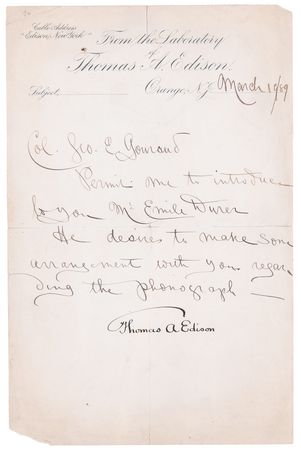 Cable Address
"Edison, New York"
From the Laboratory
of
Thomas A. Edison.
Orange, N.J. March 19/89
Subject,
Col. Geo. E. Gouraud
Permit me to introduce
to you Mr Emile Durer
He desires to make some
arrangement with you regar
ding the phonograph —
Thomas A Edison